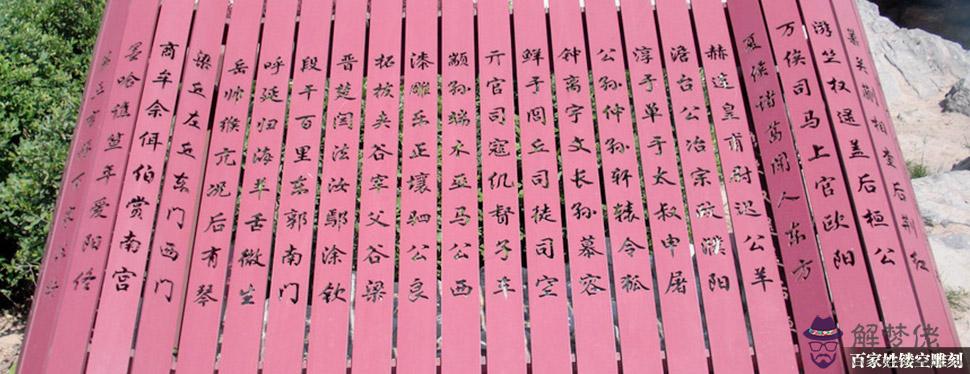 巢关蒯相查后荆红
游竺权逯盖后桓公
万俟司马上官欧阳
夏侯诸葛闻人东方
赫连皇甫尉迟公羊
澹台公冶宗政濮阳
淳于单于太叔申屠
公孙仲孙轩辕令狐
钟离宇文长孙慕容
鲜于闾丘司徒司空
亓官司寇仉督子车
颛孙端木巫马公西
漆雕乐正壤驷公良
拓拔夹谷宰父谷梁
晋楚闫法汝鄢涂钦
段干百里东郭南门
呼延归海羊舌微生
岳帅缑亢况后有琴
梁丘左丘东门西门
商牟佘佴伯赏南宫
墨哈谯笪年爱阳佟
解梦佬
百家姓镂空雕刻